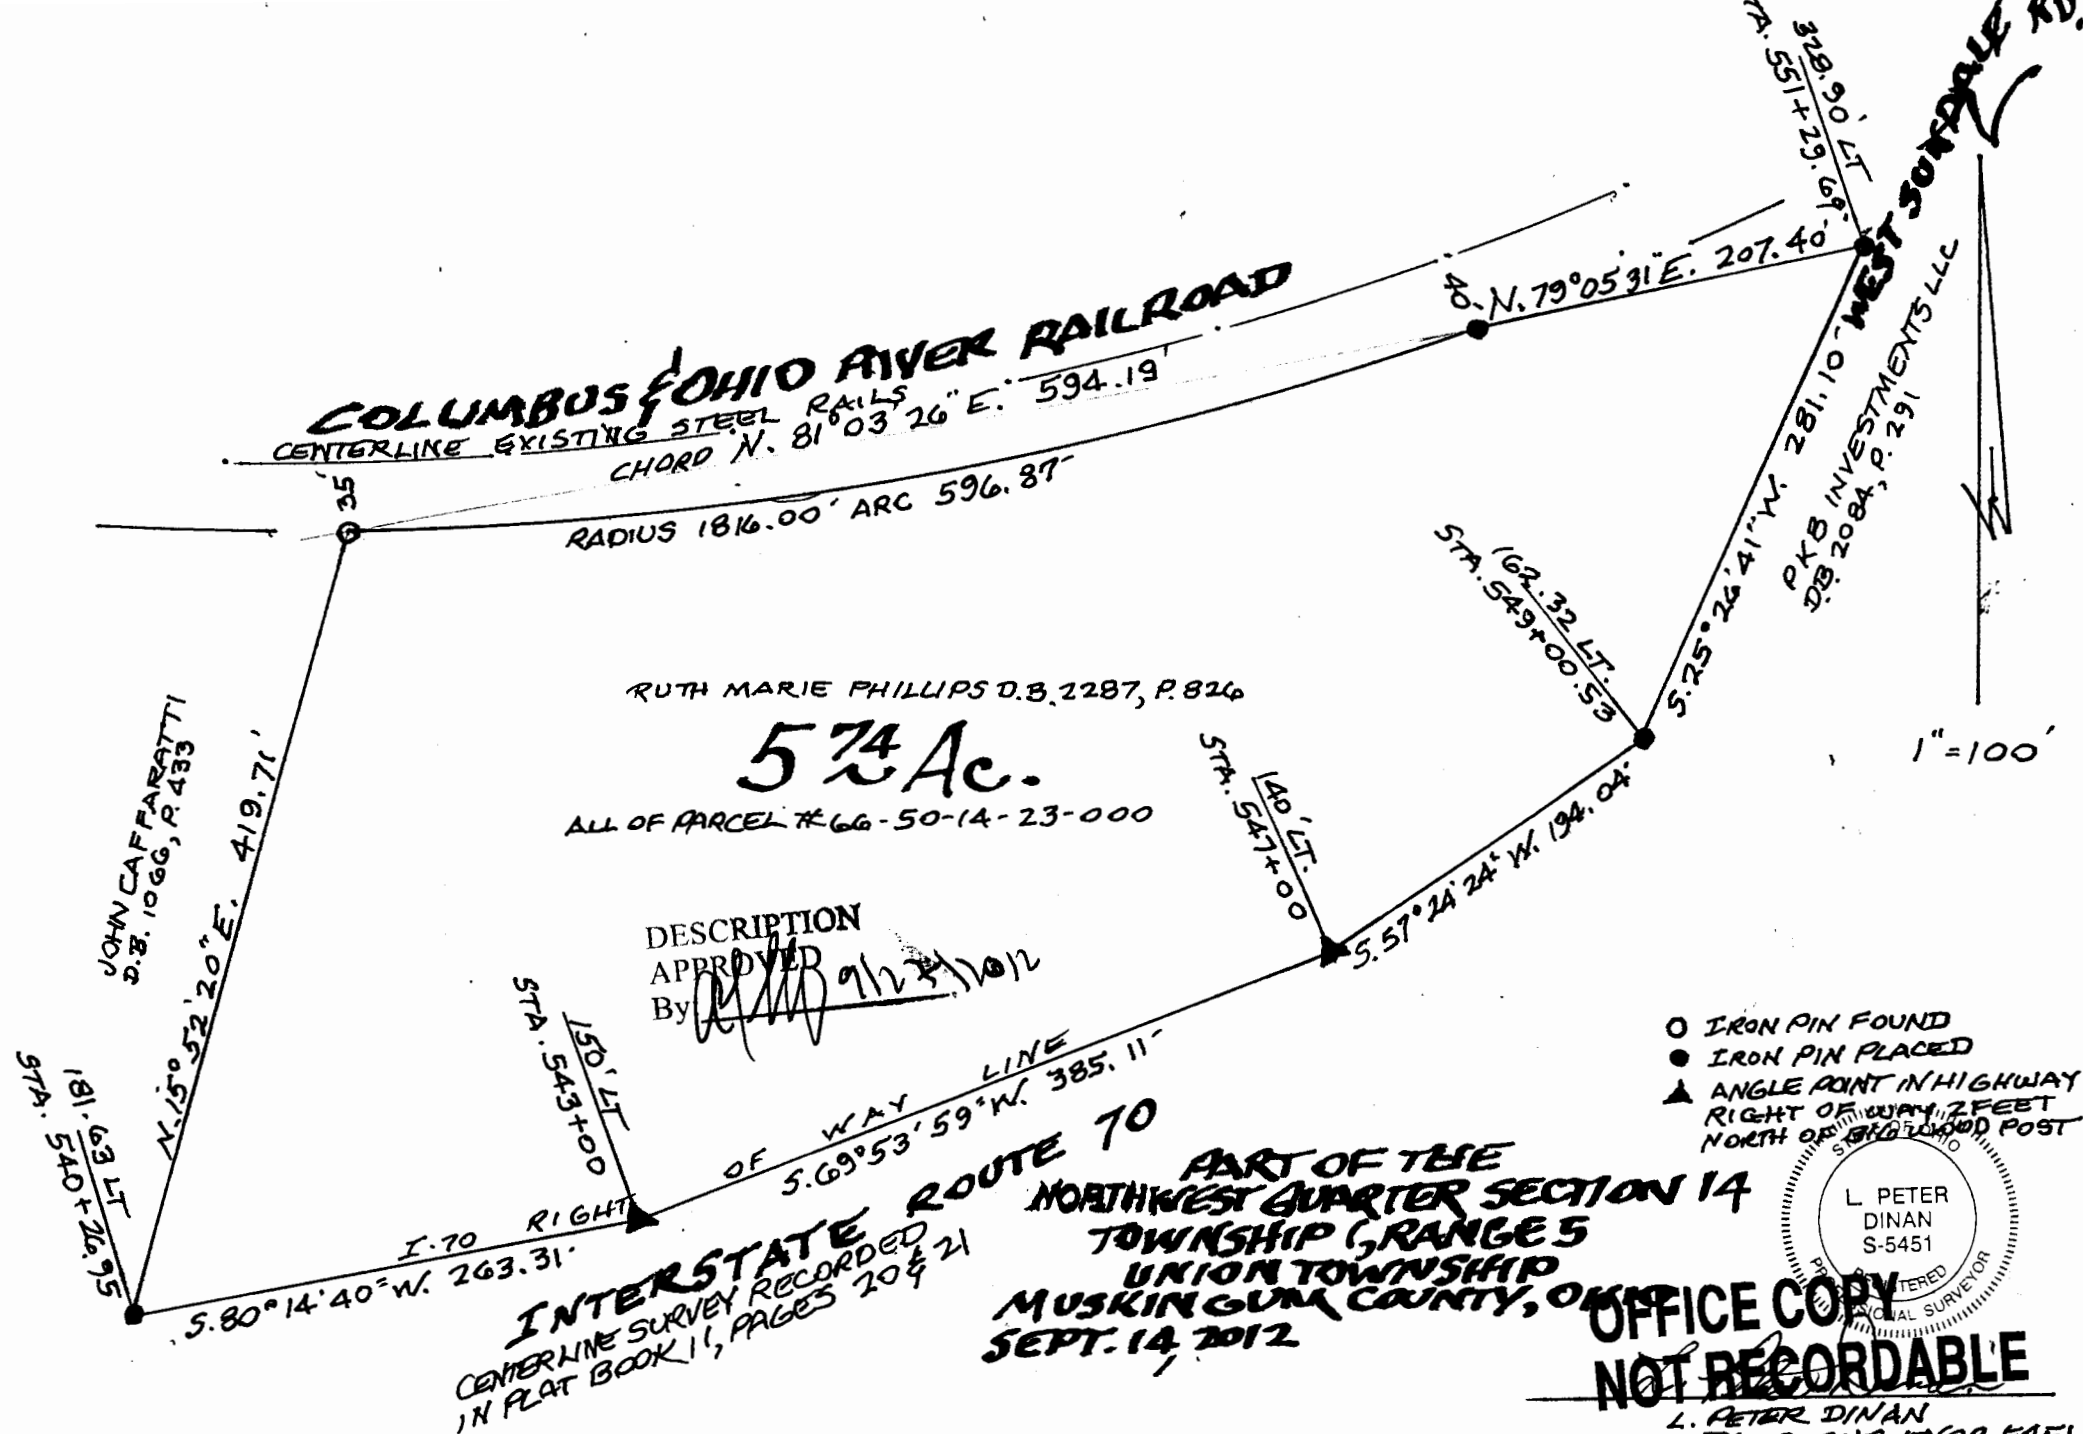 WEST SUNDALE RD.
328.90' LT
STA. 551+29.69
N. 79°05'31" E. 207.40'
40'
COLUMBUS & OHIO RIVER RAILROAD
CENTERLINE EXISTING STEEL RAILS
CHORD N. 81°03'26" E. 594.19'
RADIUS 1816.00' ARC 596.87'
35'
S. 25°26'41" W. 281.10'
PKB INVESTMENTS LLC
D.B. 2084, P. 291
162.32 LT.
STA. 549+00.53
RUTH MARIE PHILLIPS D.B. 2287, P. 826
5 74 Ac.
ALL OF PARCEL # 66-50-14-23-000
1"=100'
JOHN CAFFARATTI
D.B. 1066, P. 433
N. 15°52'20" E. 419.71'
140' LT.
STA. 547+00
S. 57°24'24" W. 194.04'
DESCRIPTION
APPROVED
By 2012
150' LT
STA. 543+00
181.63 LT
STA. 540+26.95
I-70 RIGHT OF WAY LINE
S. 69°53'59" W. 385.11'
S. 80°14'40" W. 263.31'
INTERSTATE ROUTE 70
CENTERLINE SURVEY RECORDED
IN PLAT BOOK 11, PAGES 20 & 21
O IRON PIN FOUND
● IRON PIN PLACED
▲ ANGLE POINT IN HIGHWAY
RIGHT OF WAY 2 FEET
NORTH OF BIG WOOD POST
PART OF THE
NORTHWEST QUARTER SECTION 14
TOWNSHIP 1, RANGE 5
UNION TOWNSHIP
MUSKINGUM COUNTY, OHIO
SEPT. 14, 2012
STATE OF OHIO
L. PETER
DINAN
S-5451
REGISTERED
PROFESSIONAL SURVEYOR
OFFICE COPY
NOT RECORDABLE
L. PETER DINAN